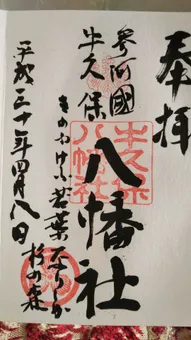 奉拝
参河國
牛久保
八幡社
きのふけふ若葉
平成三十年四月八日
牛久保八幡社